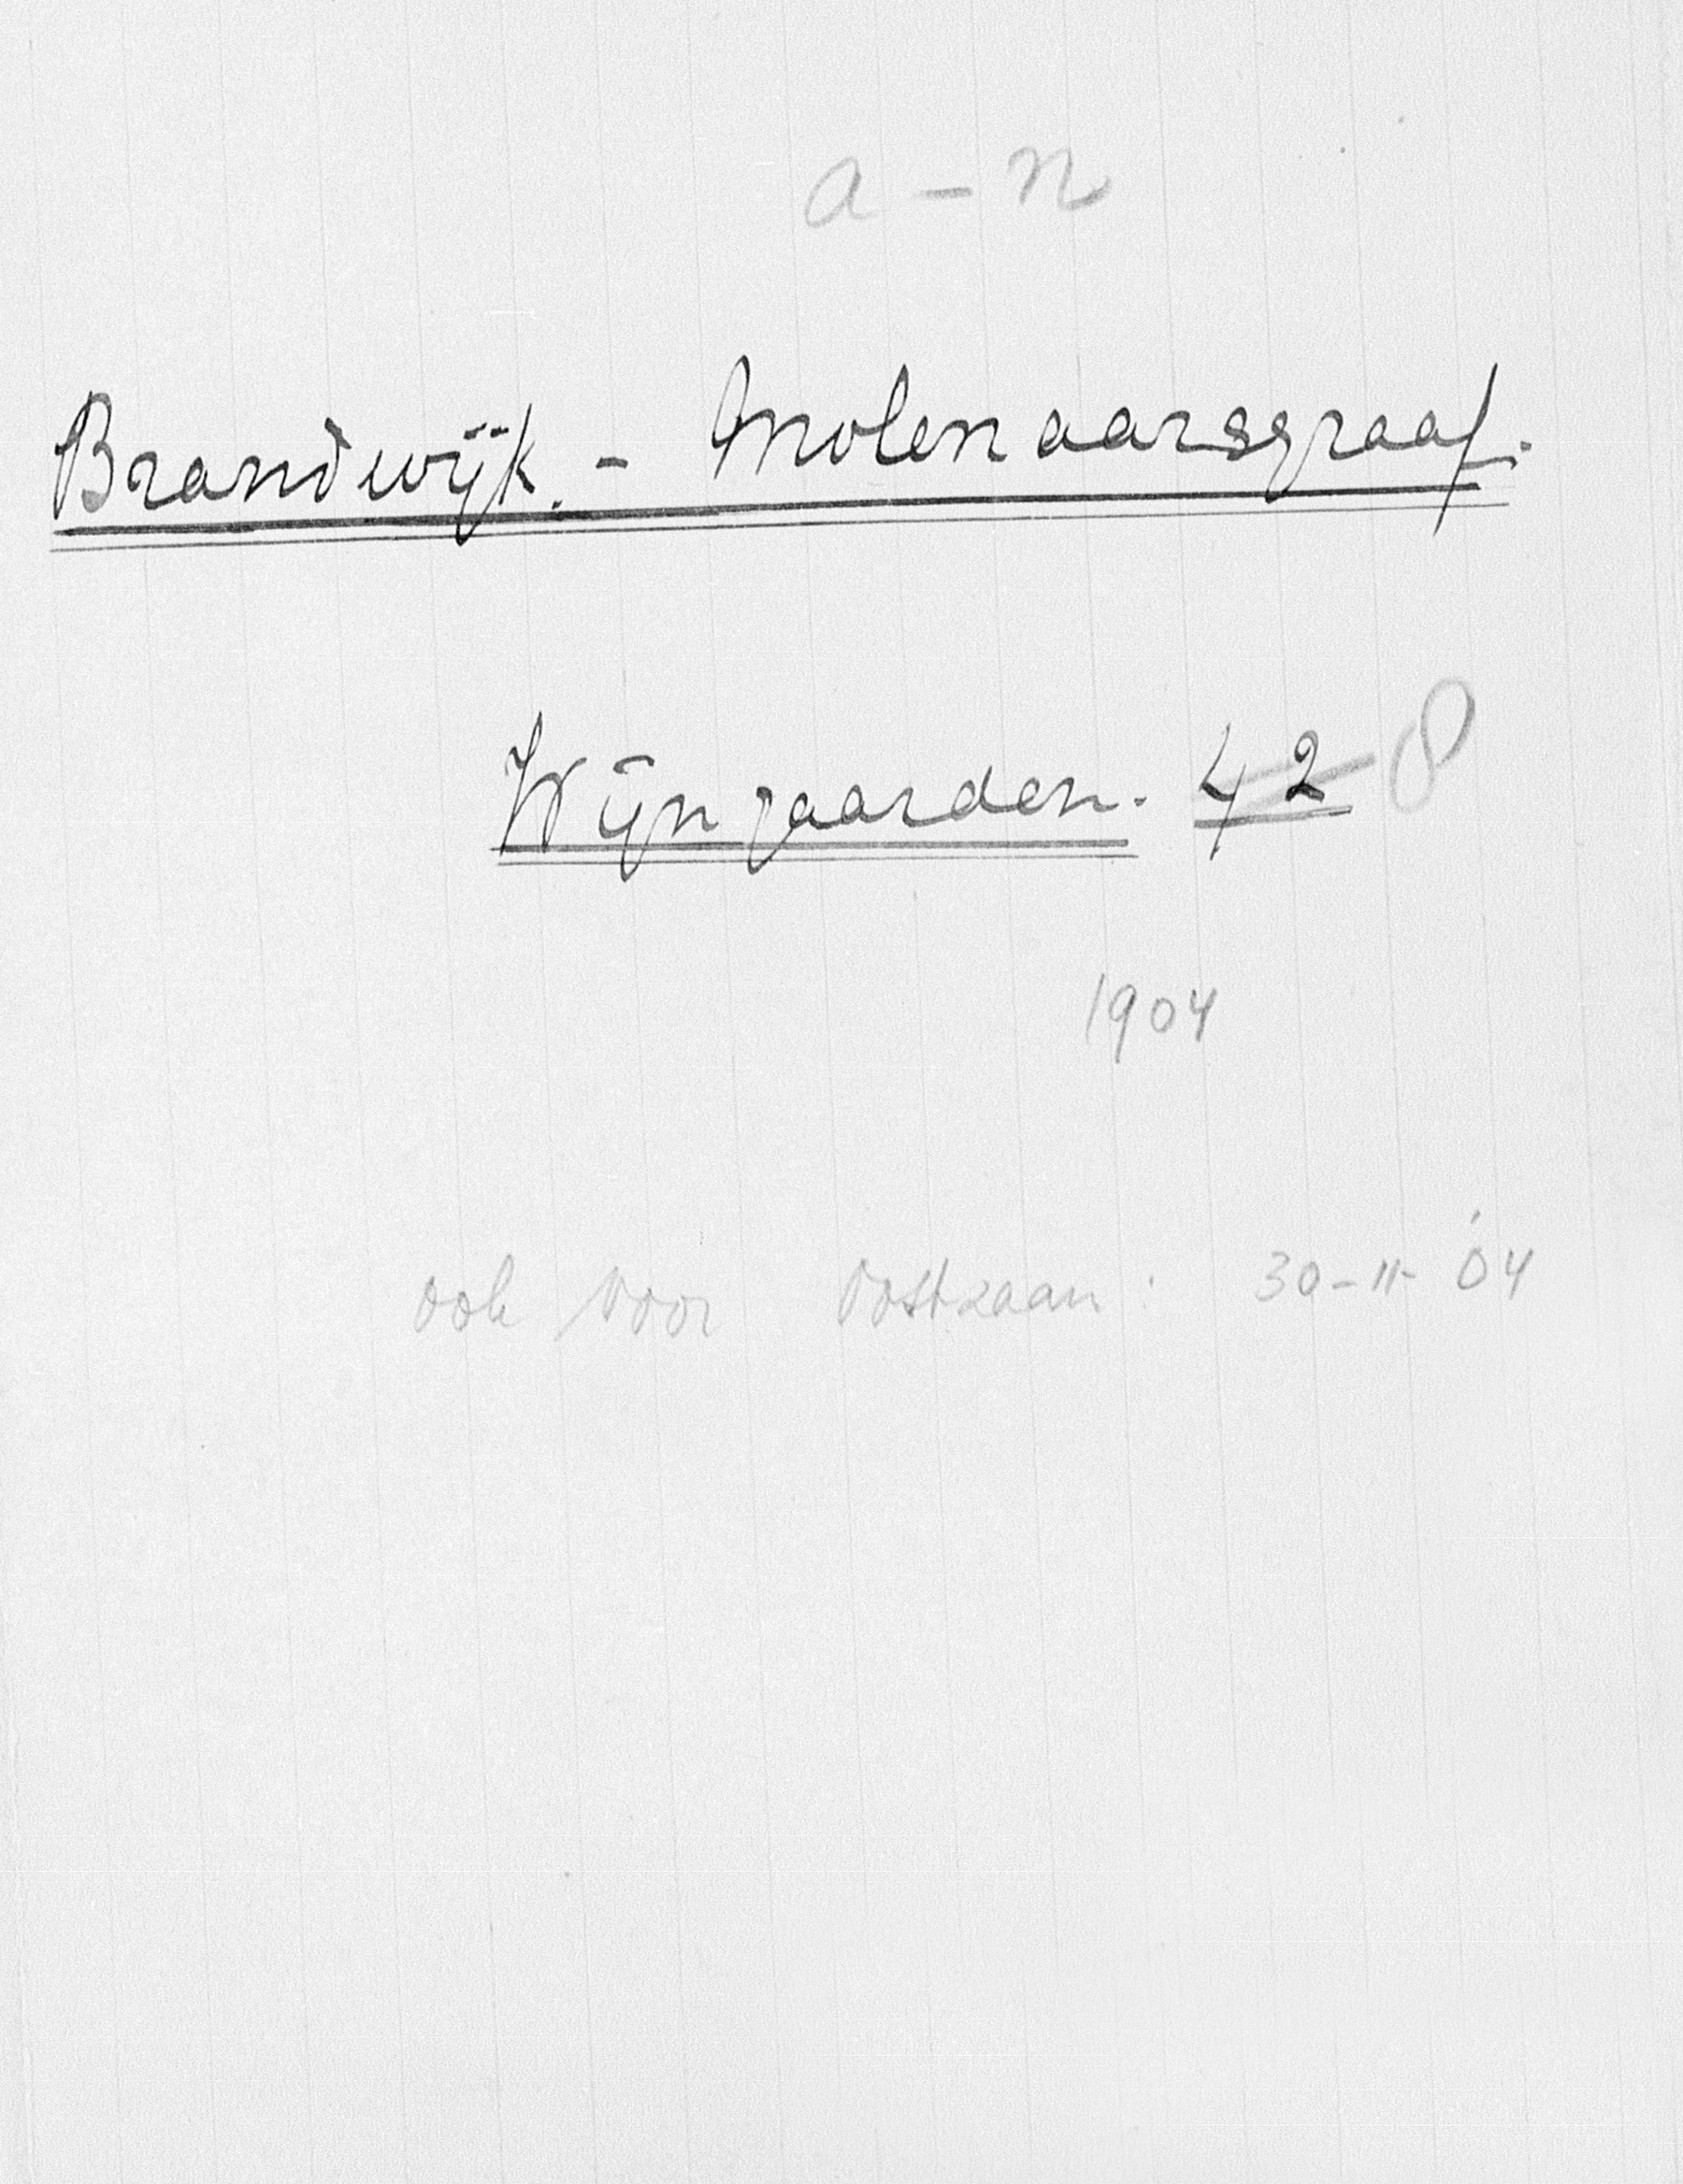 a - n
Brandwijk. - Molenaarsgraaf.
Wijngaarden. 42 8
1904
ook voor Oostzaan: 30-11-'04